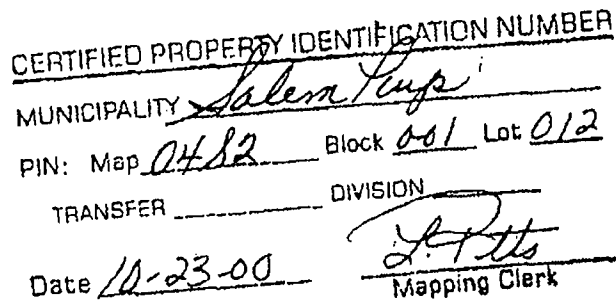 CERTIFIED PROPERTY IDENTIFICATION NUMBER
MUNICIPALITY Salem Twp
PIN: Map 0482 Block 001 Lot 012
TRANSFER DIVISION
Date 10-23-00 L. Pitts
Mapping Clerk